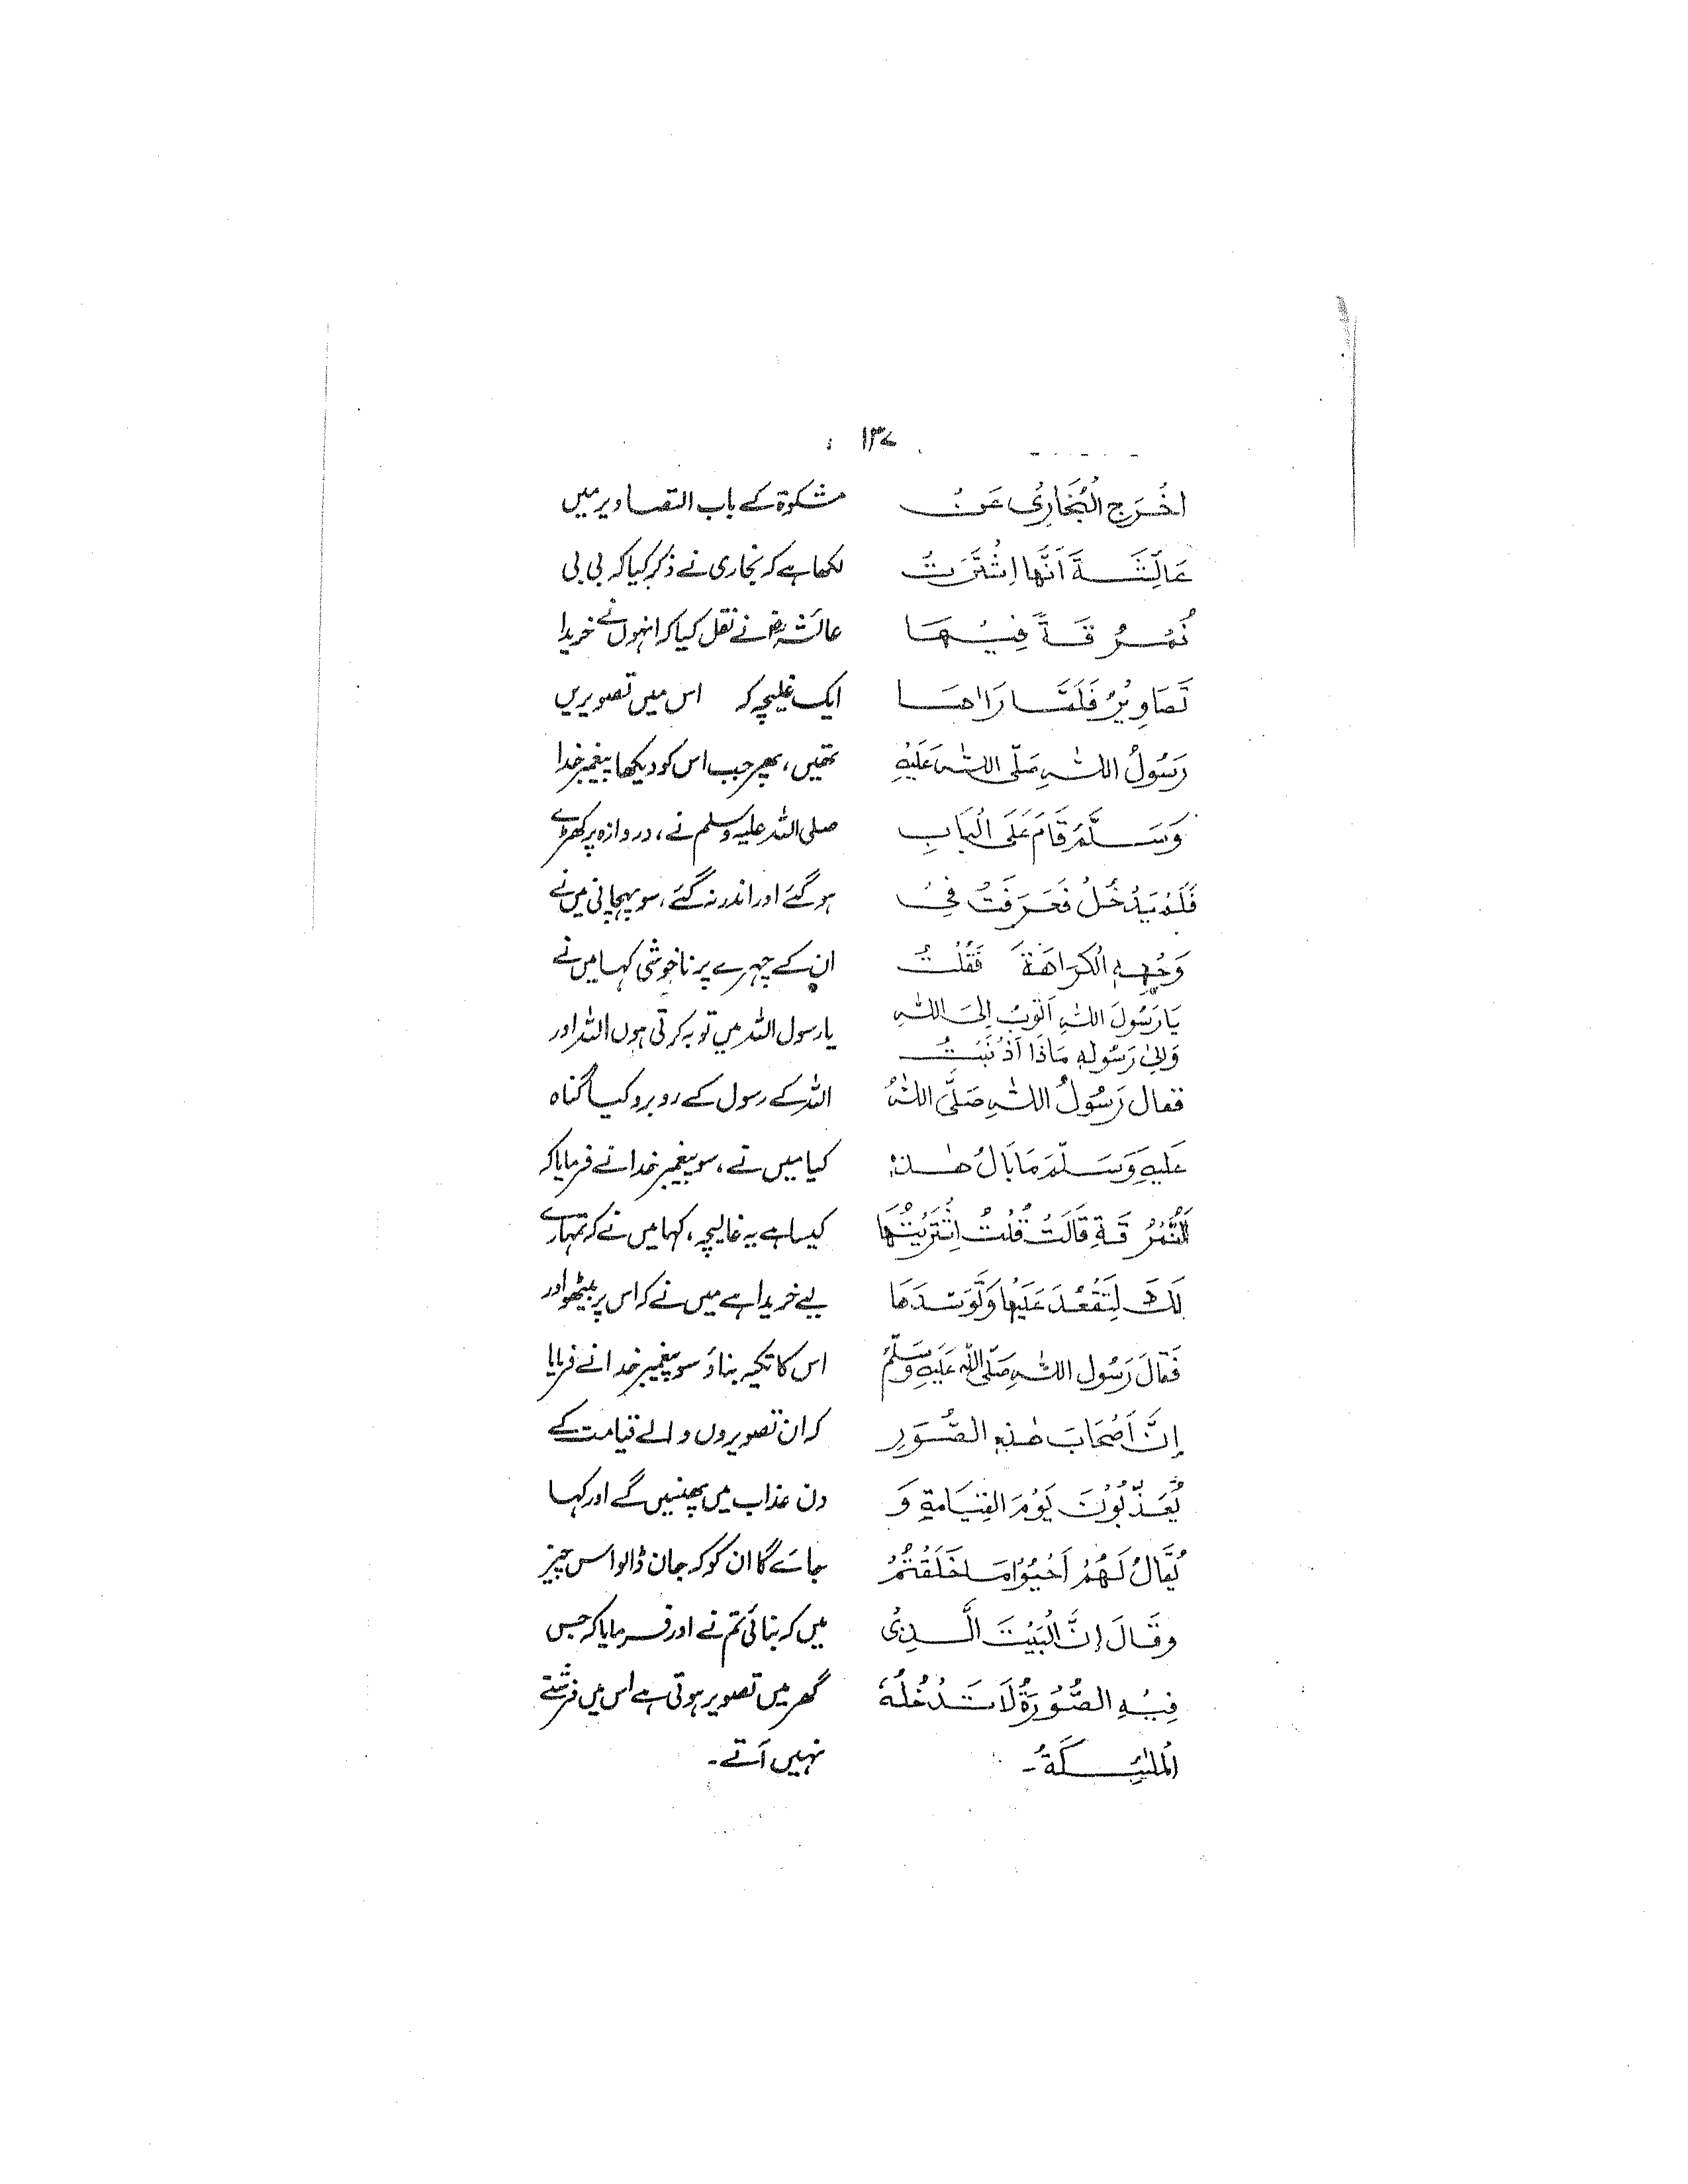 ۱۳۷
اَخْرَجَ الْبُخَارِیُ عَنْ
عَائِشَةَ اَنَّهَا اشْتَرَتْ
نُمْرُقَةً فِيْهَا
تَصَاوِيْرُ فَلَمَّا رَاٰهَا
رَسُوْلُ اللّٰهِ صَلَّى اللّٰهُ عَلَيْهِ
وَسَلَّمَ قَامَ عَلَى الْبَابِ
فَلَمْ يَدْخُلْ فَعَرَفْتُ فِیْ
وَجْهِهِ الْكَرَاهَةَ فَقُلْتُ
يَا رَسُوْلَ اللّٰهِ اَتُوْبُ اِلَى اللّٰهِ
وَاِلٰى رَسُوْلِهٖ مَاذَا اَذْنَبْتُ
فقال رَسُوْلُ اللّٰهِ صَلَّى اللّٰهُ
عَلَيْهِ وَسَلَّمَ مَا بَالُ هٰذِهِ
النُّمْرُقَةِ قَالَتْ قُلْتُ اِشْتَرَيْتُهَا
لَكَ لِتَقْعُدَ عَلَيْهَا وَتَوَسَّدَهَا
فَقَالَ رَسُول اللّٰهِ صَلَّى اللّٰهُ عَلَيْهِ وَسَلَّمَ
اِنَّ اَصْحَابَ هٰذِهِ الصُّوَرِ
يُعَذَّبُوْنَ يَوْمَ الْقِيَامَةِ وَ
يُقَالُ لَهُمْ اَحْيُوْا مَا خَلَقْتُمْ
وَقَالَ اِنَّ الْبَيْتَ الَّذِیْ
فِيْهِ الصُّوْرَةُ لَا تَدْخُلُهُ
الْمَلٰئِكَةُ۔
مشکوٰۃ کے باب التصاویر میں
لکھا ہے کہ بخاری نے ذکر کیا کہ بی بی
عائشہؓ نے نقل کیا کہ انہوں نے خریدا
ایک غلیچہ کہ اس میں تصویریں
تھیں، پھر جب اس کو دیکھا پیغمبر خدا
صلی اللہ علیہ وسلم نے، دروازہ پر کھڑے
ہو گئے اور اندر نہ گئے، سو پہچانی میں نے
ان کے چہرے پر ناخوشی کہا میں نے
یا رسول اللہ میں توبہ کرتی ہوں اللہ اور
اللہ کے رسول کے روبرو کیا گناہ
کیا میں نے، سو پیغمبر خدا نے فرمایا کہ
کیسا ہے یہ غالیچہ، کہا میں نے کہ تمہارے
لیے خریدا ہے میں نے کہ اس پر بیٹھو اور
اس کا تکیہ بناؤ سو پیغمبر خدا نے فرمایا
کہ ان تصویروں والے قیامت کے
دن عذاب میں پھنسیں گے اور کہا
جائے گا ان کو کہ جان ڈالو اس چیز
میں کہ بنائی تم نے اور فرمایا کہ جس
گھر میں تصویر ہوتی ہے اس میں فرشتے
نہیں آتے۔